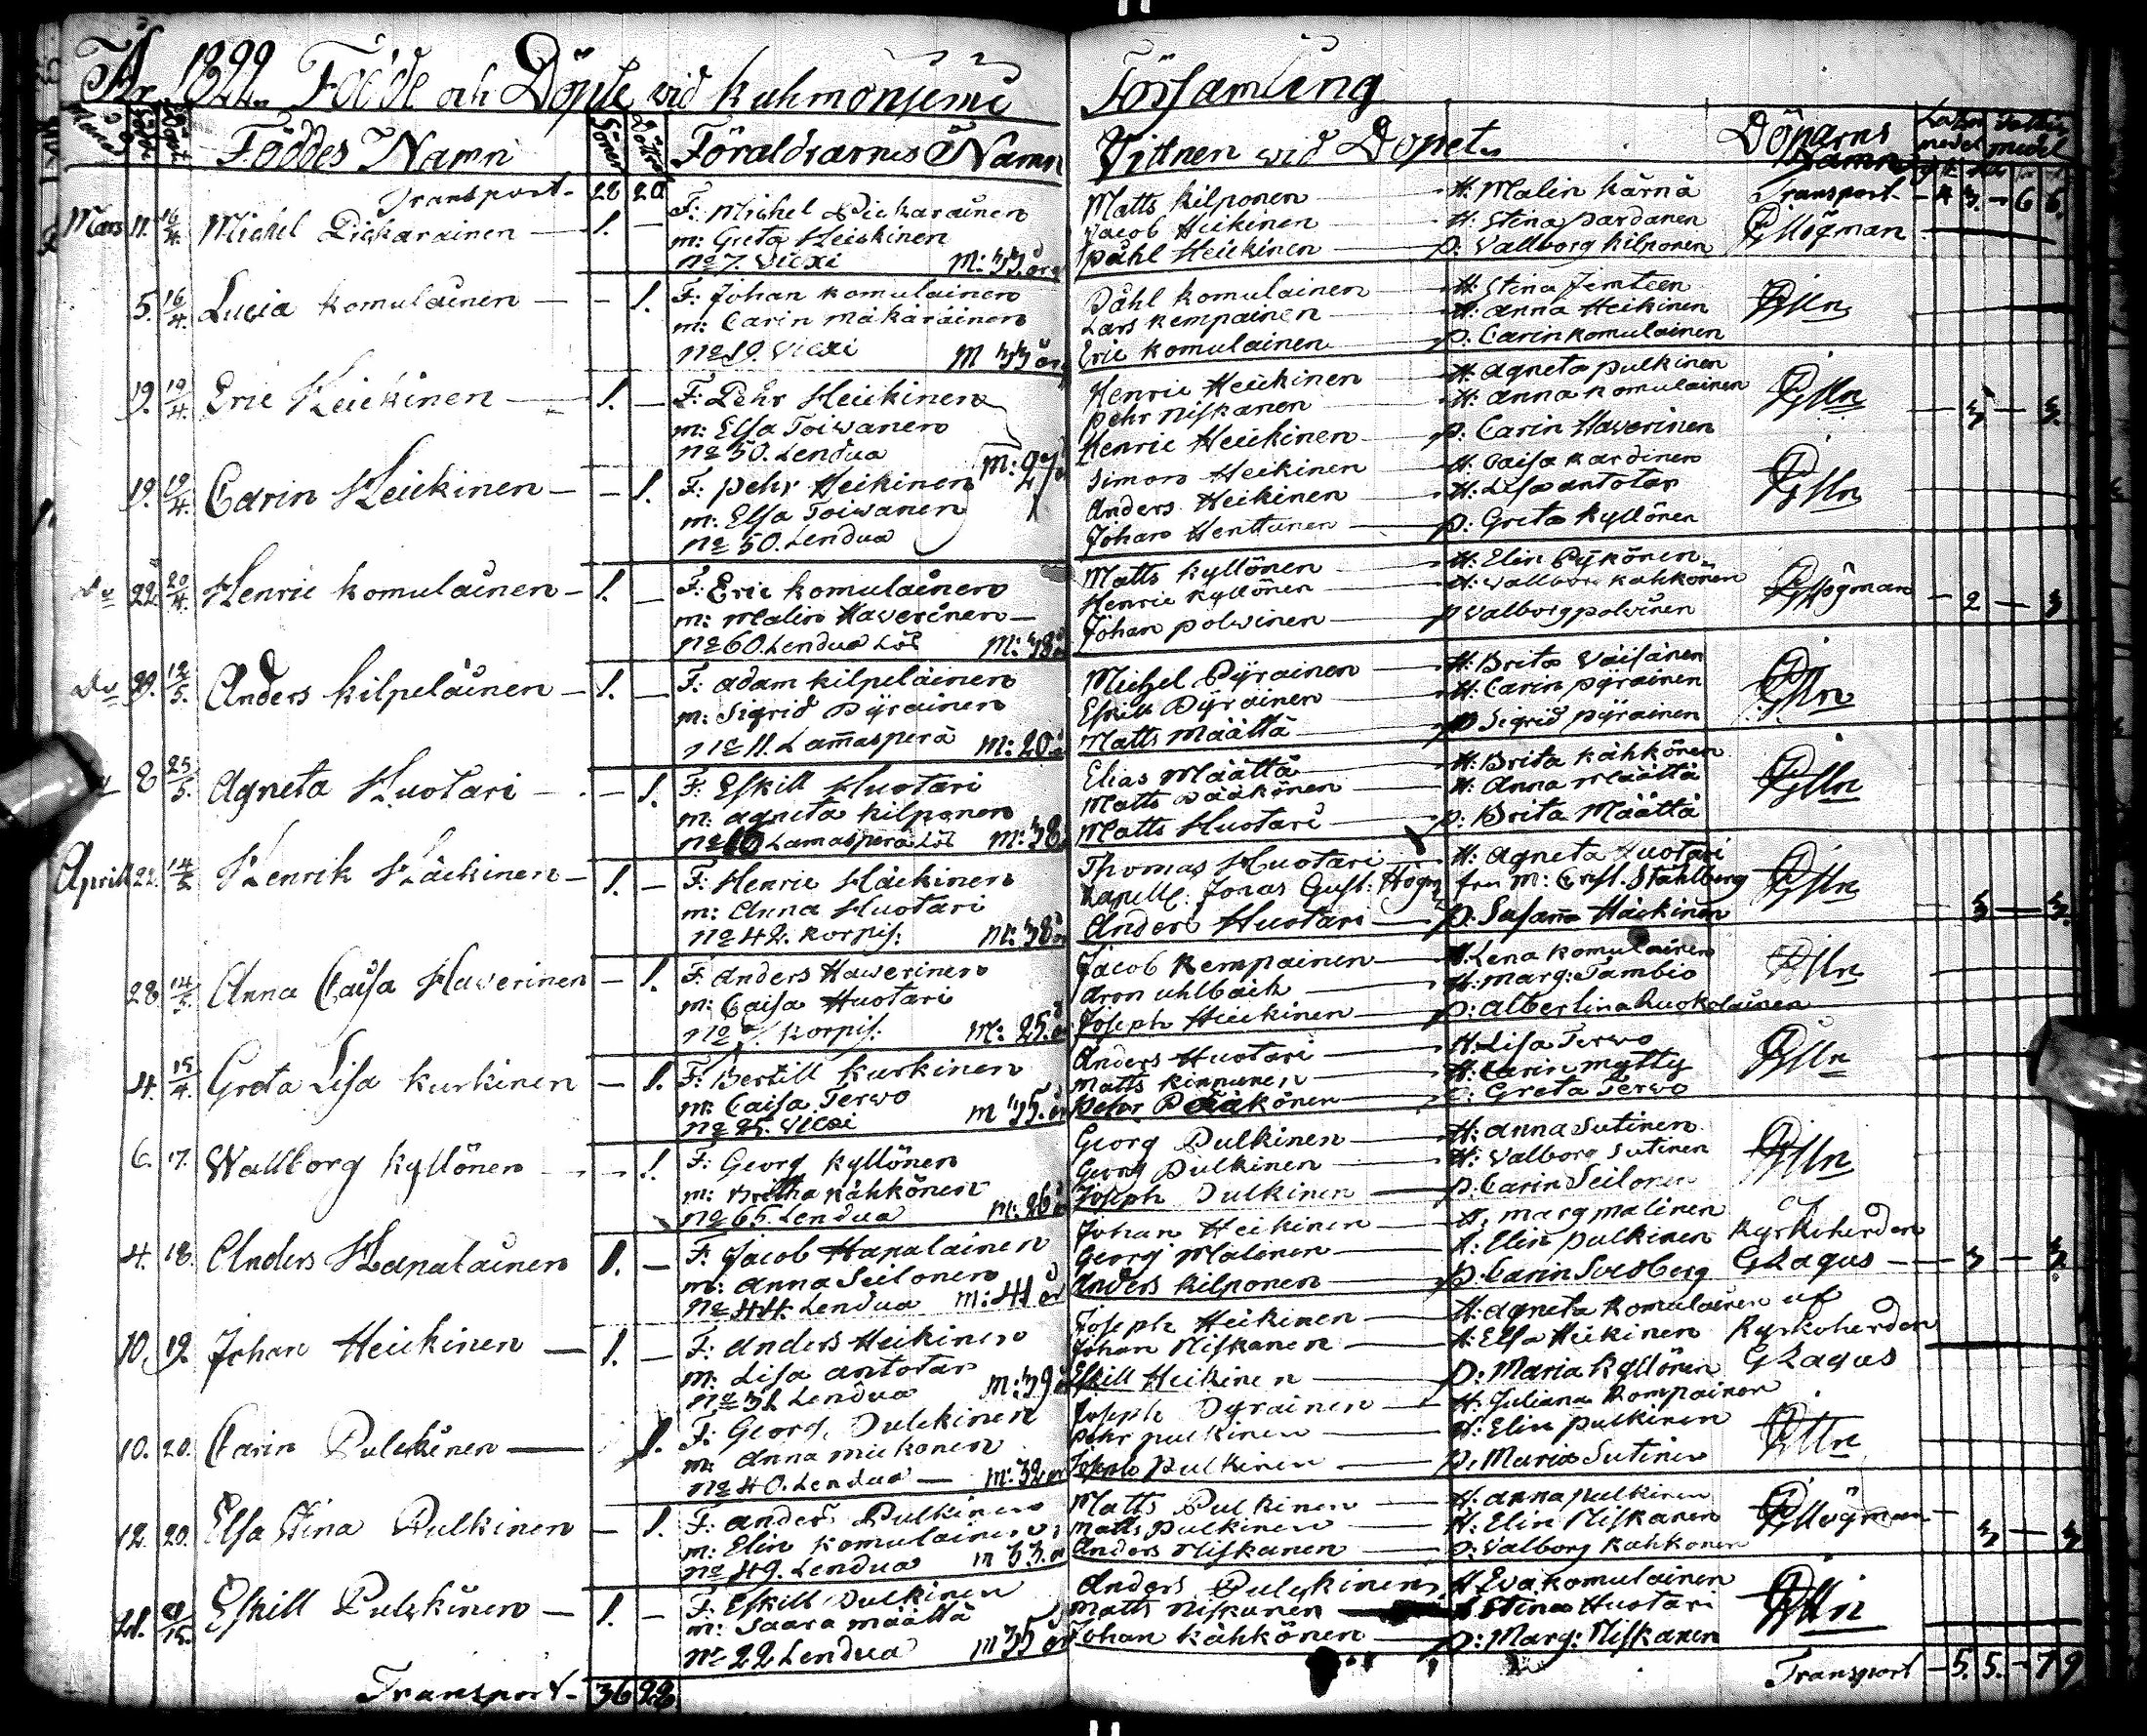 År 1822. Födde och Döpte vid Kuhmoniemi Församling
Föddes Namn Söner Döttrar Föräldrarnes Namn Vittnen vid Dopet. Döparns Namn
Transport - 28 20 Transport - 4 3. - 6 6.
Mars 11. 16/4. Michel Pickarainen - 1. - F: Michel Pickarainen Matts Kilponen - H: Malin Kärnä
m: Greta Heickinen Jacob Heikinen - H: Stina Pardanen Högman
No 7. Viexi M: 33 år Påhl Heickinen - p: Vallborg Kilponen
5. 16/4. Lucia Komulainen - - 1. F: Johan Komulainen Påhl Komulainen - H: Stina Jemteen
m: Carin Mäkäräinen Lars Kempainen - H: Anna Heikinen
No 19. Viexi M 33 år Eric Komulainen - p. Carin Komulainen
19. 19/4. Eric Heickinen - 1. - F: Pehr Heickinen Henric Heickinen - H: Agneta Pulkinen
m: Elsa Toiwanen Pehr Niskanen - H: Anna Komulainen - 3 - 3.
No 50. Lendua M: 27 Henric Heickinen - p: Carin Haverinen
19. 19/4. Carin Heickinen - - 1. F: Pehr Heikinen Simon Heikinen - H: Caisa Kardinen
m: Elsa Toiwanen Anders Heikinen - H: Lisa Antotar
No 50. Lendua Johan Henttunen - p: Greta Kyllönen
22. 20/4. Henric Komulainen - 1. - F: Eric Komulainen Matts Kyllönen - H: Elin Pykönen
m: Malin Haverinen - Henric Kyllönen - H: Vallbor Kähkönen Högman - 2 - 3
No 60. Lendua Lös M: 38 Johan Polvinen - p Valborg Polvinen
29. 12/5. Anders Kilpeläinen - 1. - F: Adam Kilpeläinen Michel Pyrainen - H: Brita Väisänen
m: Sigrid Pyräinen Eskill Pyräinen - H: Carin Pyräinen
No 11. Lam̄asperä M: 20 Matts Määttä - p Sigrid Pyräinen
8 25/5. Agneta Huotari - - 1. F: Eskill Huotari Elias Määttä - H: Brita Kähkönen
m: Agneta Kilponen Matts Pääkönen - H: Anna Määttä
No 16 Lamasperä Lös M: 38 Matts Huotari - p: Brita Määttä
April 22. 14/5 Henrik Häckinen - 1. - F: Henric Häckinen Thomas Huotari - H: Agneta Huotari
m: Anna Huotari Kapell. Jonas Gust: Högm fru M: Crist. Ståhlberg
No 42. Korpis: M: 38 Anders Huotari - p. Susan̄a Häckinen 3 - 3.
28 14/5. Anna Caisa Haverinen - 1. F: Anders Haverinen Jacob Kempainen - H. Lena Komulainen
m: Caisa Huotari Aron Uhlbäck - H: Marg: Tambio
Korpis: M: 25. Joseph Heickinen - p: Albertina Ruokolainen
4. 15/4. Greta Lisa Kurkinen - 1. F: Bertill Kurkinen Anders Huotari - H: Lisa Terwo
m: Caisa Terwo Matts Kinnunen - H: Carin Mytty
No 25. Viexi M 35. Pehr Pääkönen - Greta Terwo
6. 17. Wallborg Kyllönen - - 1. F: Georg Kyllönen Georg Pulkinen - H: Anna Sutinen
m: Britha Kähkönen Georg Pulkinen - H: Valborg Sutinen
No 65. Lendua M: 26 Joseph Pulkinen - p. Carin Seilonen
4. 18. Anders Hapalainen 1. - F. Jacob Hapalainen Johan Heikinen - H. Marg Malinen af
m: Anna Seilonen Georg Malinen - H: Elin Pulkinen Kyrkoherden
No 44. Lendua M: 41 år Anders Kilponen - p. Carin Soedberg GLagus - 3 - 3.
10. 19. Johan Heickinen - 1. - F: Anders Heikinen Joseph Heikinen - H: Agneta Komulainen af
m: Lisa Antotar Johan Niskanen - H: Elsa Heikinen Kyrkoherden
No 31 Lendua M: 39 Eskill Heikinen - p: Maria Kyllönen GLagus
10. 20. Carin Pulckinen - 1. F: Georg Pulckinen Joseph Pyrainen - H. Juliana Kempainen
m: Anna Mickonen Pehr Pulkinen - H: Elin Pulkinen
No 40. Lendua - M: 32 Joseph Pulkinen - p, Maria Sutinen
12. 20. Elsa Stina Pulkinen - 1. F: Anders Pulkinen Matts Pulkinen - H: Anna Pulkinen
m: Elin Komulainen Matts Pulkinen - H: Elin Niskanen Högman
No 49. Lendua M 33. Anders Niskanen - p: Valborg Kähkönen 3 - 3
21. Eskill Pulckinen - 1. - F: Eskill Pulkinen Anders Pulckinen H Eva Komulainen
m: Saara Määttä Matts Niskanen Stina Huotari
No 22 Lendua M 35 år Johan Kähkönen - p: Marg: Niskanen
Transport - 36 28 Transport - 5. 5. - 7 9